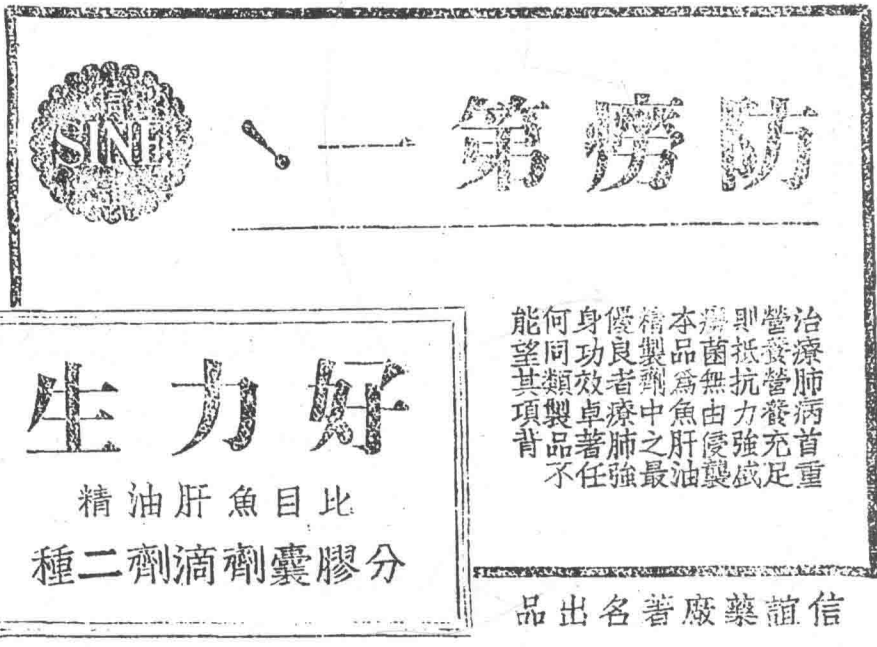 信
SINE
誼
防癆第一、
治療肺病首重
營養營養充足
則抵抗力強盛
癆菌無由侵襲
本品爲魚肝油
精製劑中之最
優良者療肺強
身功效卓著任
何同類製品不
能望其項背
好力生
比目魚肝油精
分膠囊劑滴劑二種
信誼藥廠著名出品